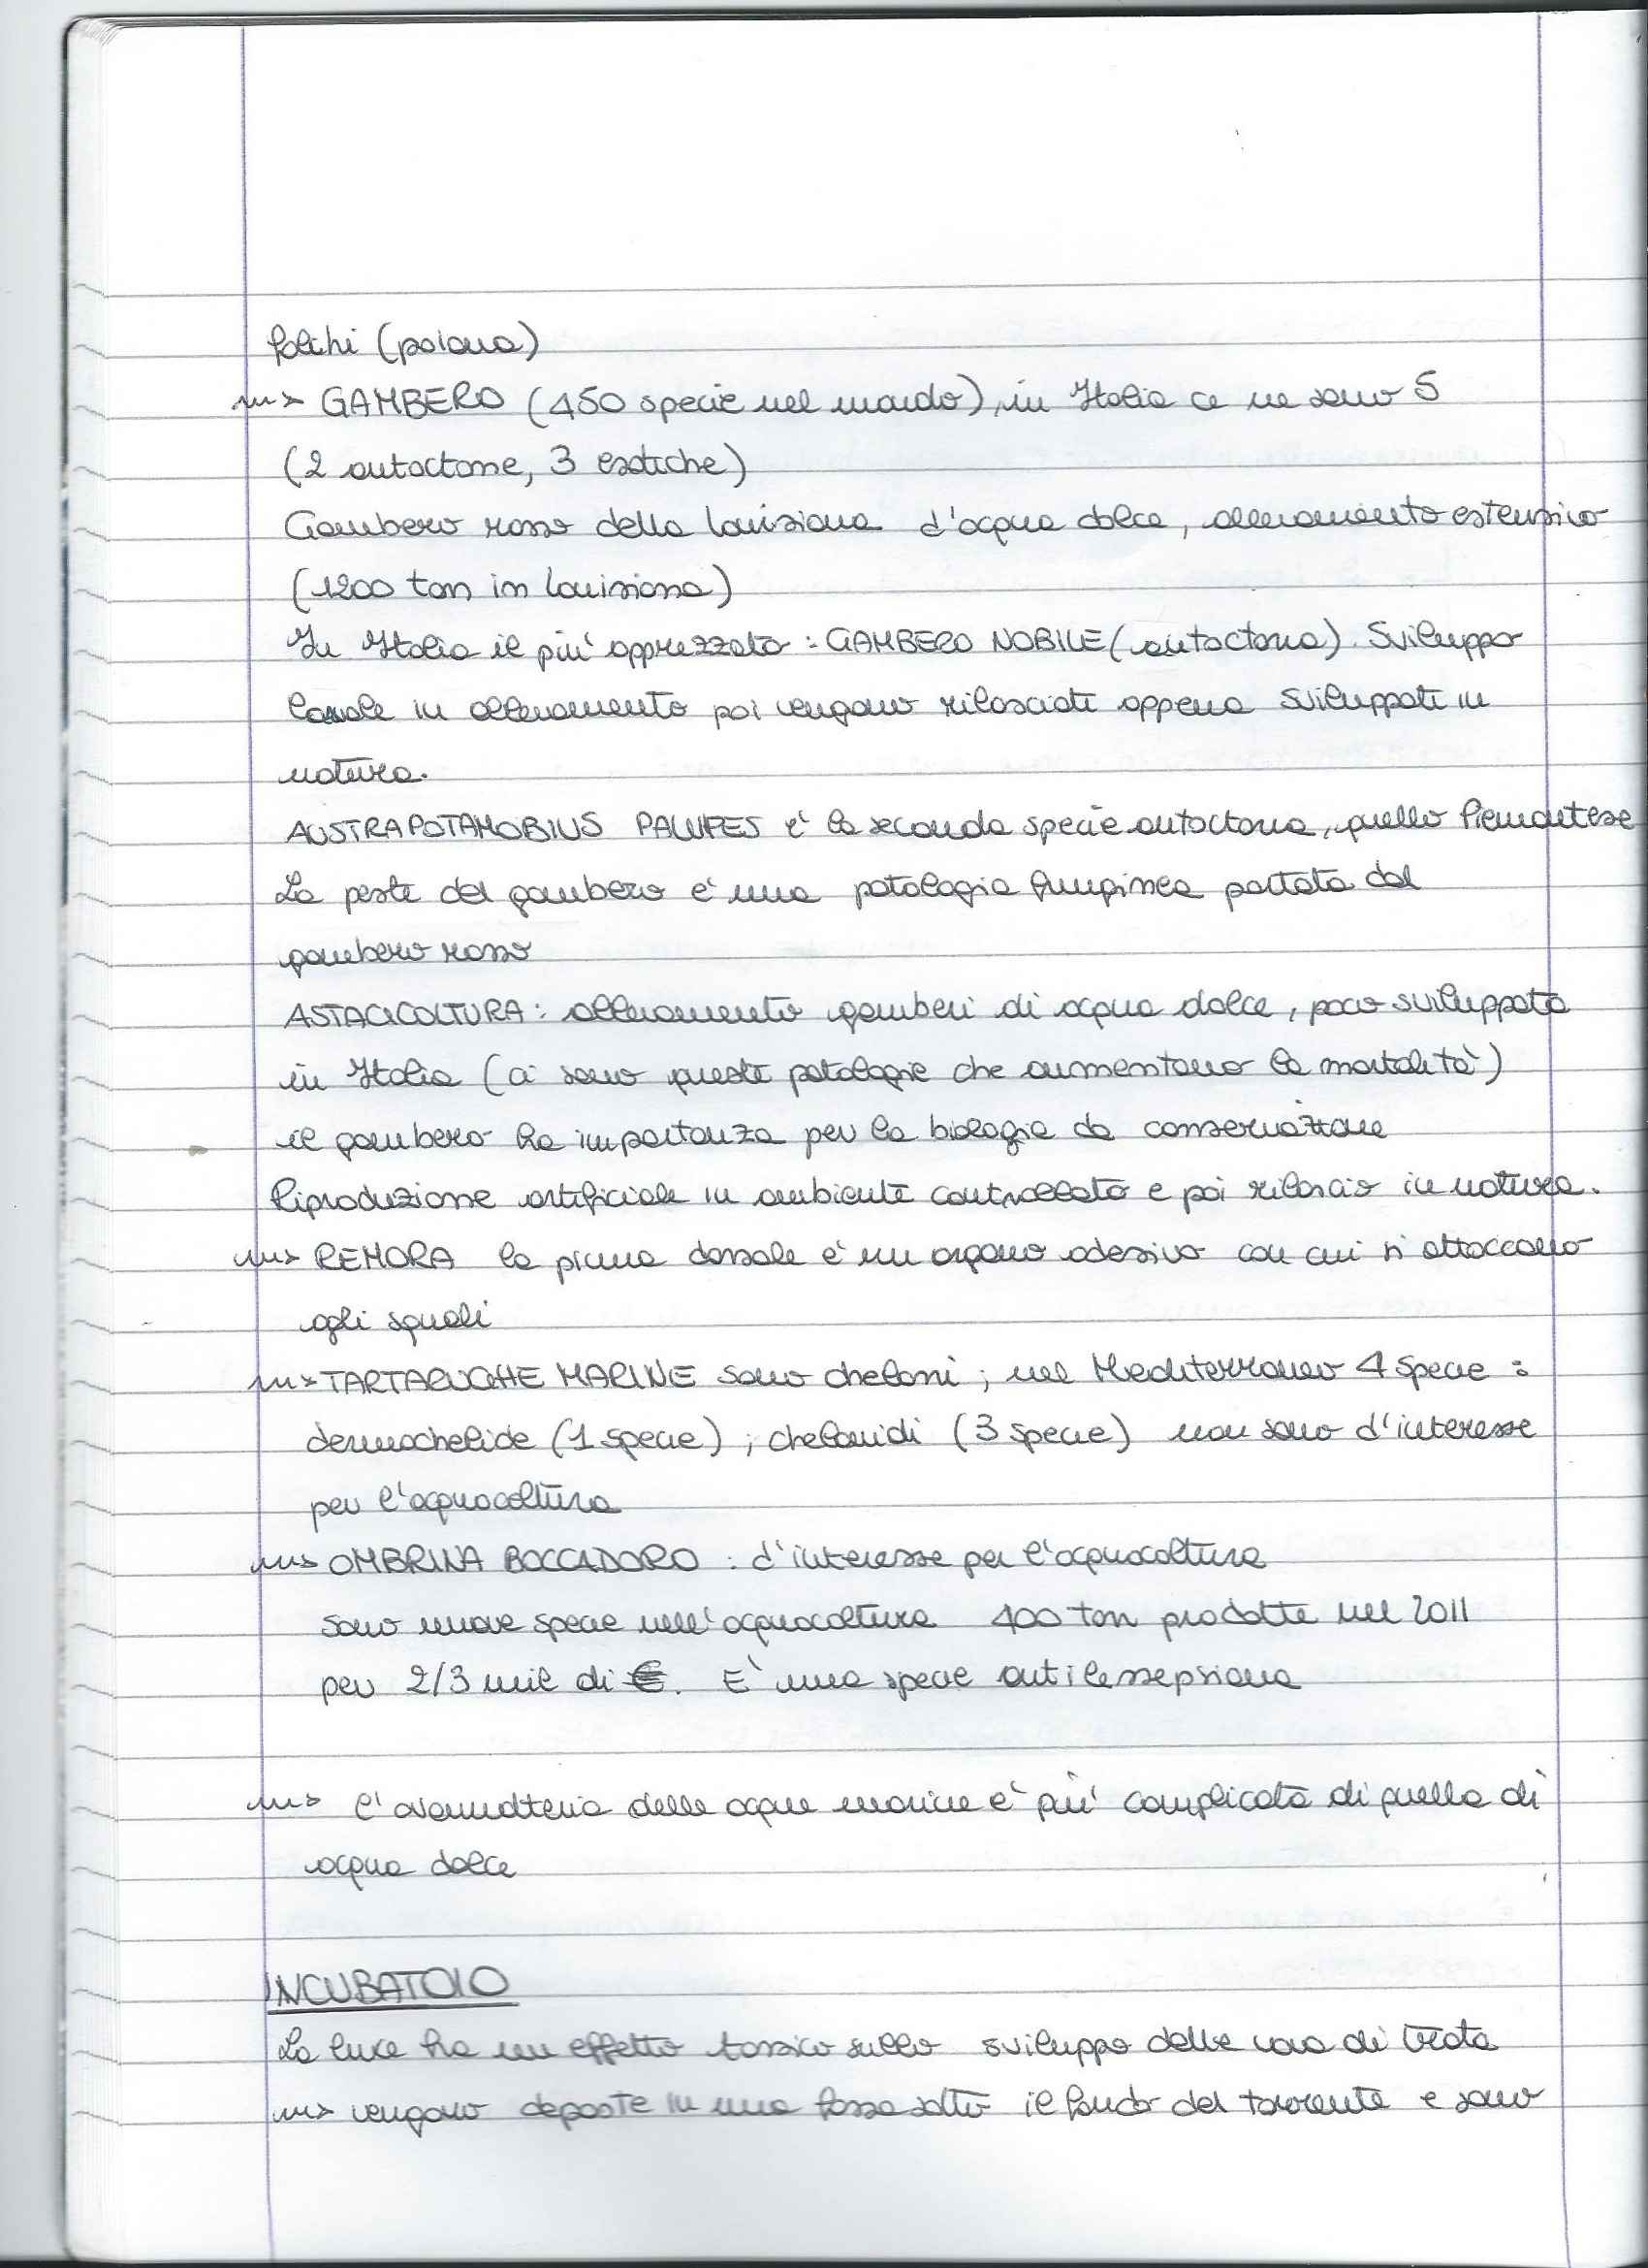 falchi (poiana)
⟿ GAMBERO (450 specie nel mondo), in Italia ce ne sono 5
(2 autoctone, 3 esotiche)
Gambero rosso della Louisiana d'acqua dolce, allevamento estensivo
(1200 ton in Louisiana)
In Italia il più apprezzato: GAMBERO NOBILE (autoctono). Sviluppo
larvale in allevamento poi vengono rilasciati appena sviluppati in
natura.
AUSTRAPOTAMOBIUS PALLIPES è la seconda specie autoctona, quello Piemontese
La peste del gambero è una patologia funginea portata dal
gambero rosso
ASTACICOLTURA: allevamento gamberi di acqua dolce, poco sviluppata
in Italia (ci sono queste patologie che aumentano la mortalità)
il gambero ha importanza per la biologia da conservazione
Riproduzione artificiale in ambiente controllato e poi rilascio in natura.
⟿ REMORA la pinna dorsale è un organo adesivo con cui si attaccano
agli squali
⟿ TARTARUGHE MARINE sono cheloni; nel Mediterraneo 4 specie:
dermochelide (1 specie); chelonidi (3 specie) non sono d'interesse
per l'acquacoltura
⟿ OMBRINA BOCCADORO: d'interesse per l'acquacoltura
sono nuove specie nell'acquacoltura 400 ton prodotte nel 2011
per 2/3 mil di €. E' una specie antilessepsiana
⟿ l'avannotteria delle acque marine è più complicata di quella di
acqua dolce
INCUBATOIO
La luce ha un effetto tossico sullo sviluppo delle uova di trota
⟿ vengono deposte in una fossa sotto il fondo del torrente e sono